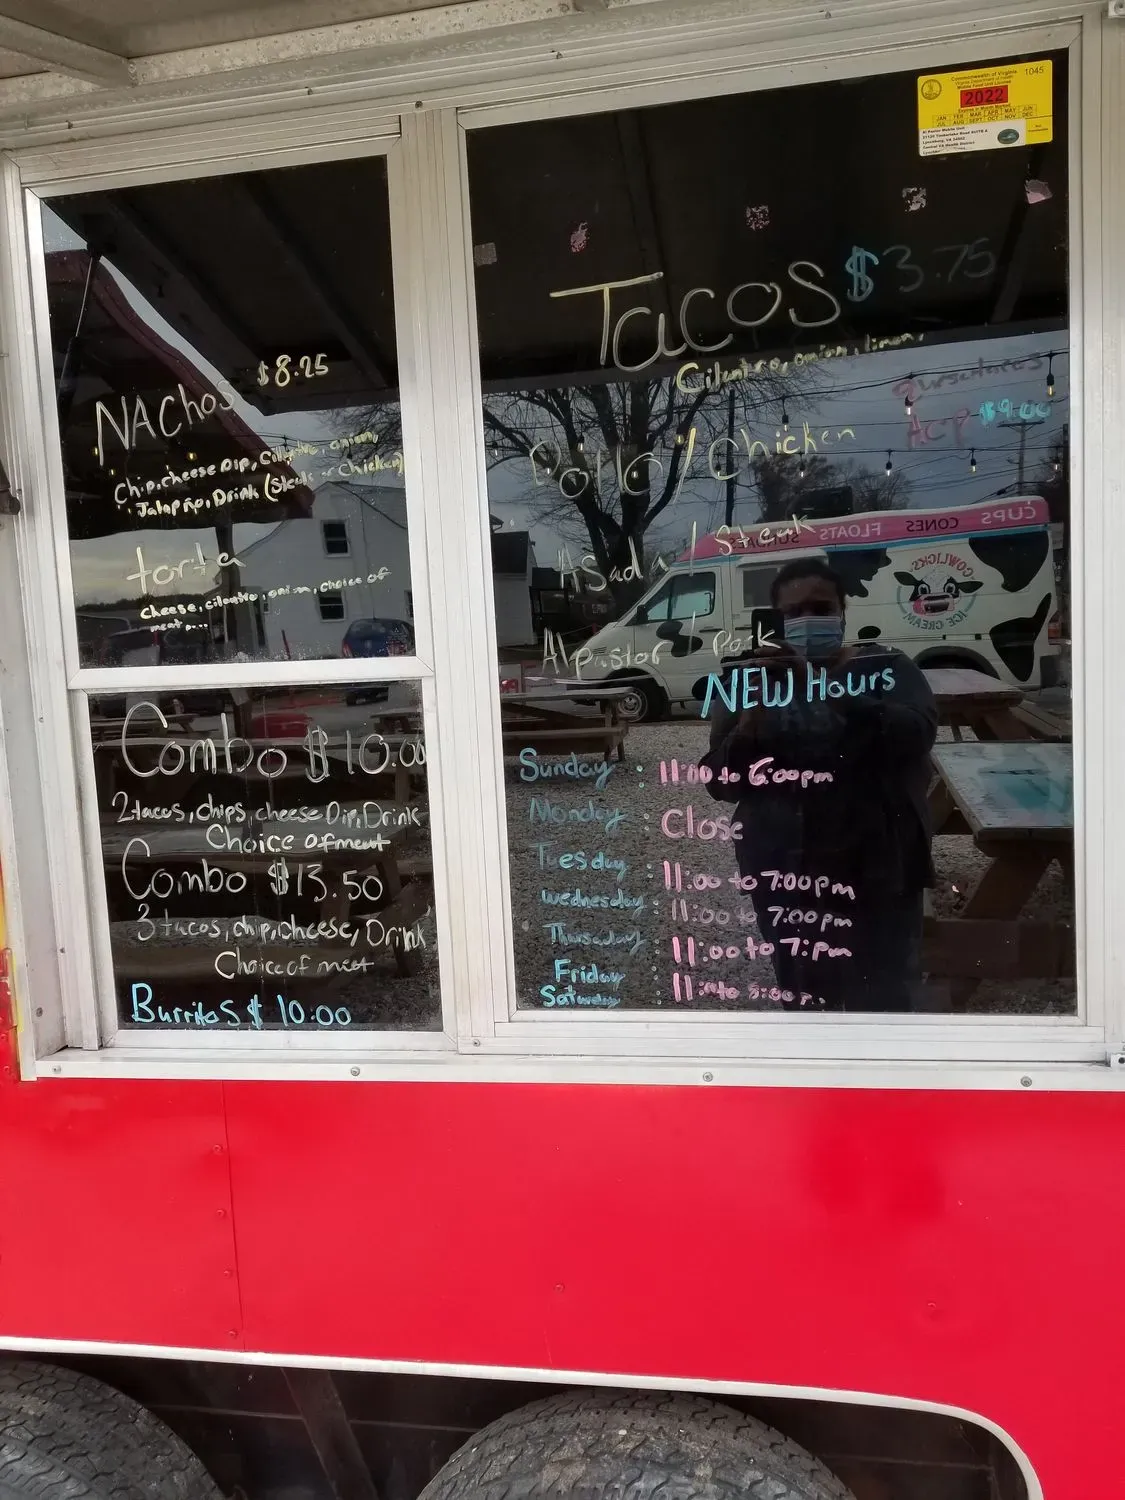 NAchos $8.25
Chip, cheese Dip, Cilantro, onion,
Jalapño, Drink (Steak or Chicken)
torta
cheese, cilantro, onion, choice of
meat,....
Combo $10.00
2 tacos, chips, cheese Dip, Drink
Choice of meat
Combo $13.50
3 tacos, chip, cheese, Drink
Choice of meat
Burritos $10:00
Commonwealth of Virginia 1045
Virginia Department of Health
2022
JAN FEB MAR APR MAY JUN
JUL AUG SEPT OCT NOV DEC
Al Pastor Mobile Unit
Tacos $3.75
Cilantro, onion, limon,
ACP $9.00
Pollo / Chicken
Asada / Steak
Al pastor / Pork
CUPS CONES FLOATS SUNDAES
COWLICKS
ICE CREAM
NEW Hours
Sunday : 11:00 to 6:00pm
Monday : Close
Tuesday : 11:00 to 7:00pm
wednesday : 11:00 to 7:00pm
Thursaday : 11:00 to 7:pm
Friday
Saturday : 11: